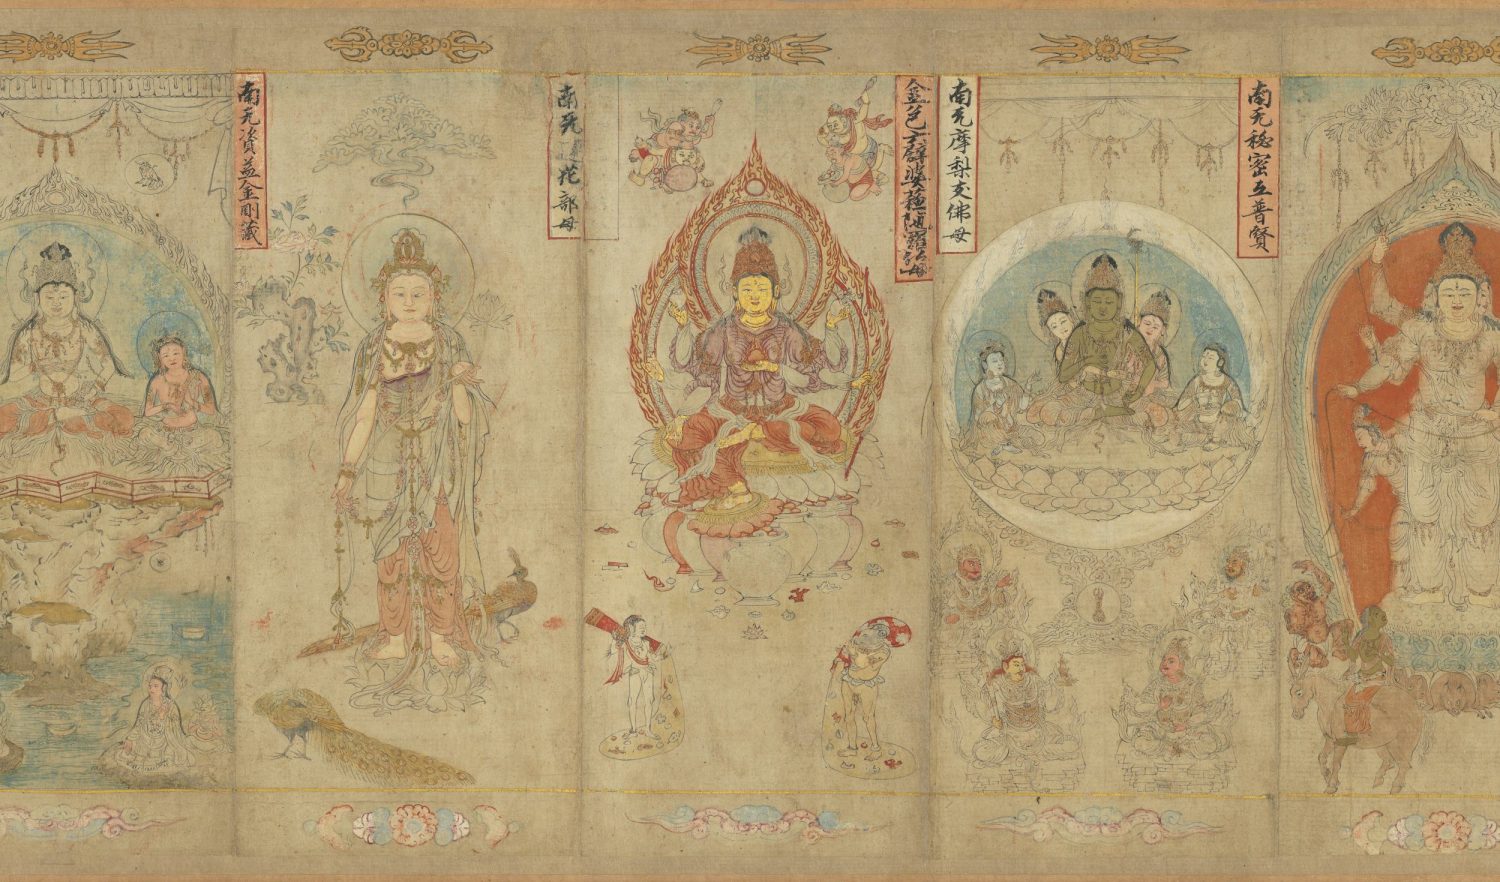 南无秘密五普賢
南无摩梨支佛母
金色六臂婆蘓陁羅佛母
南无花部母
南无資益金剛藏